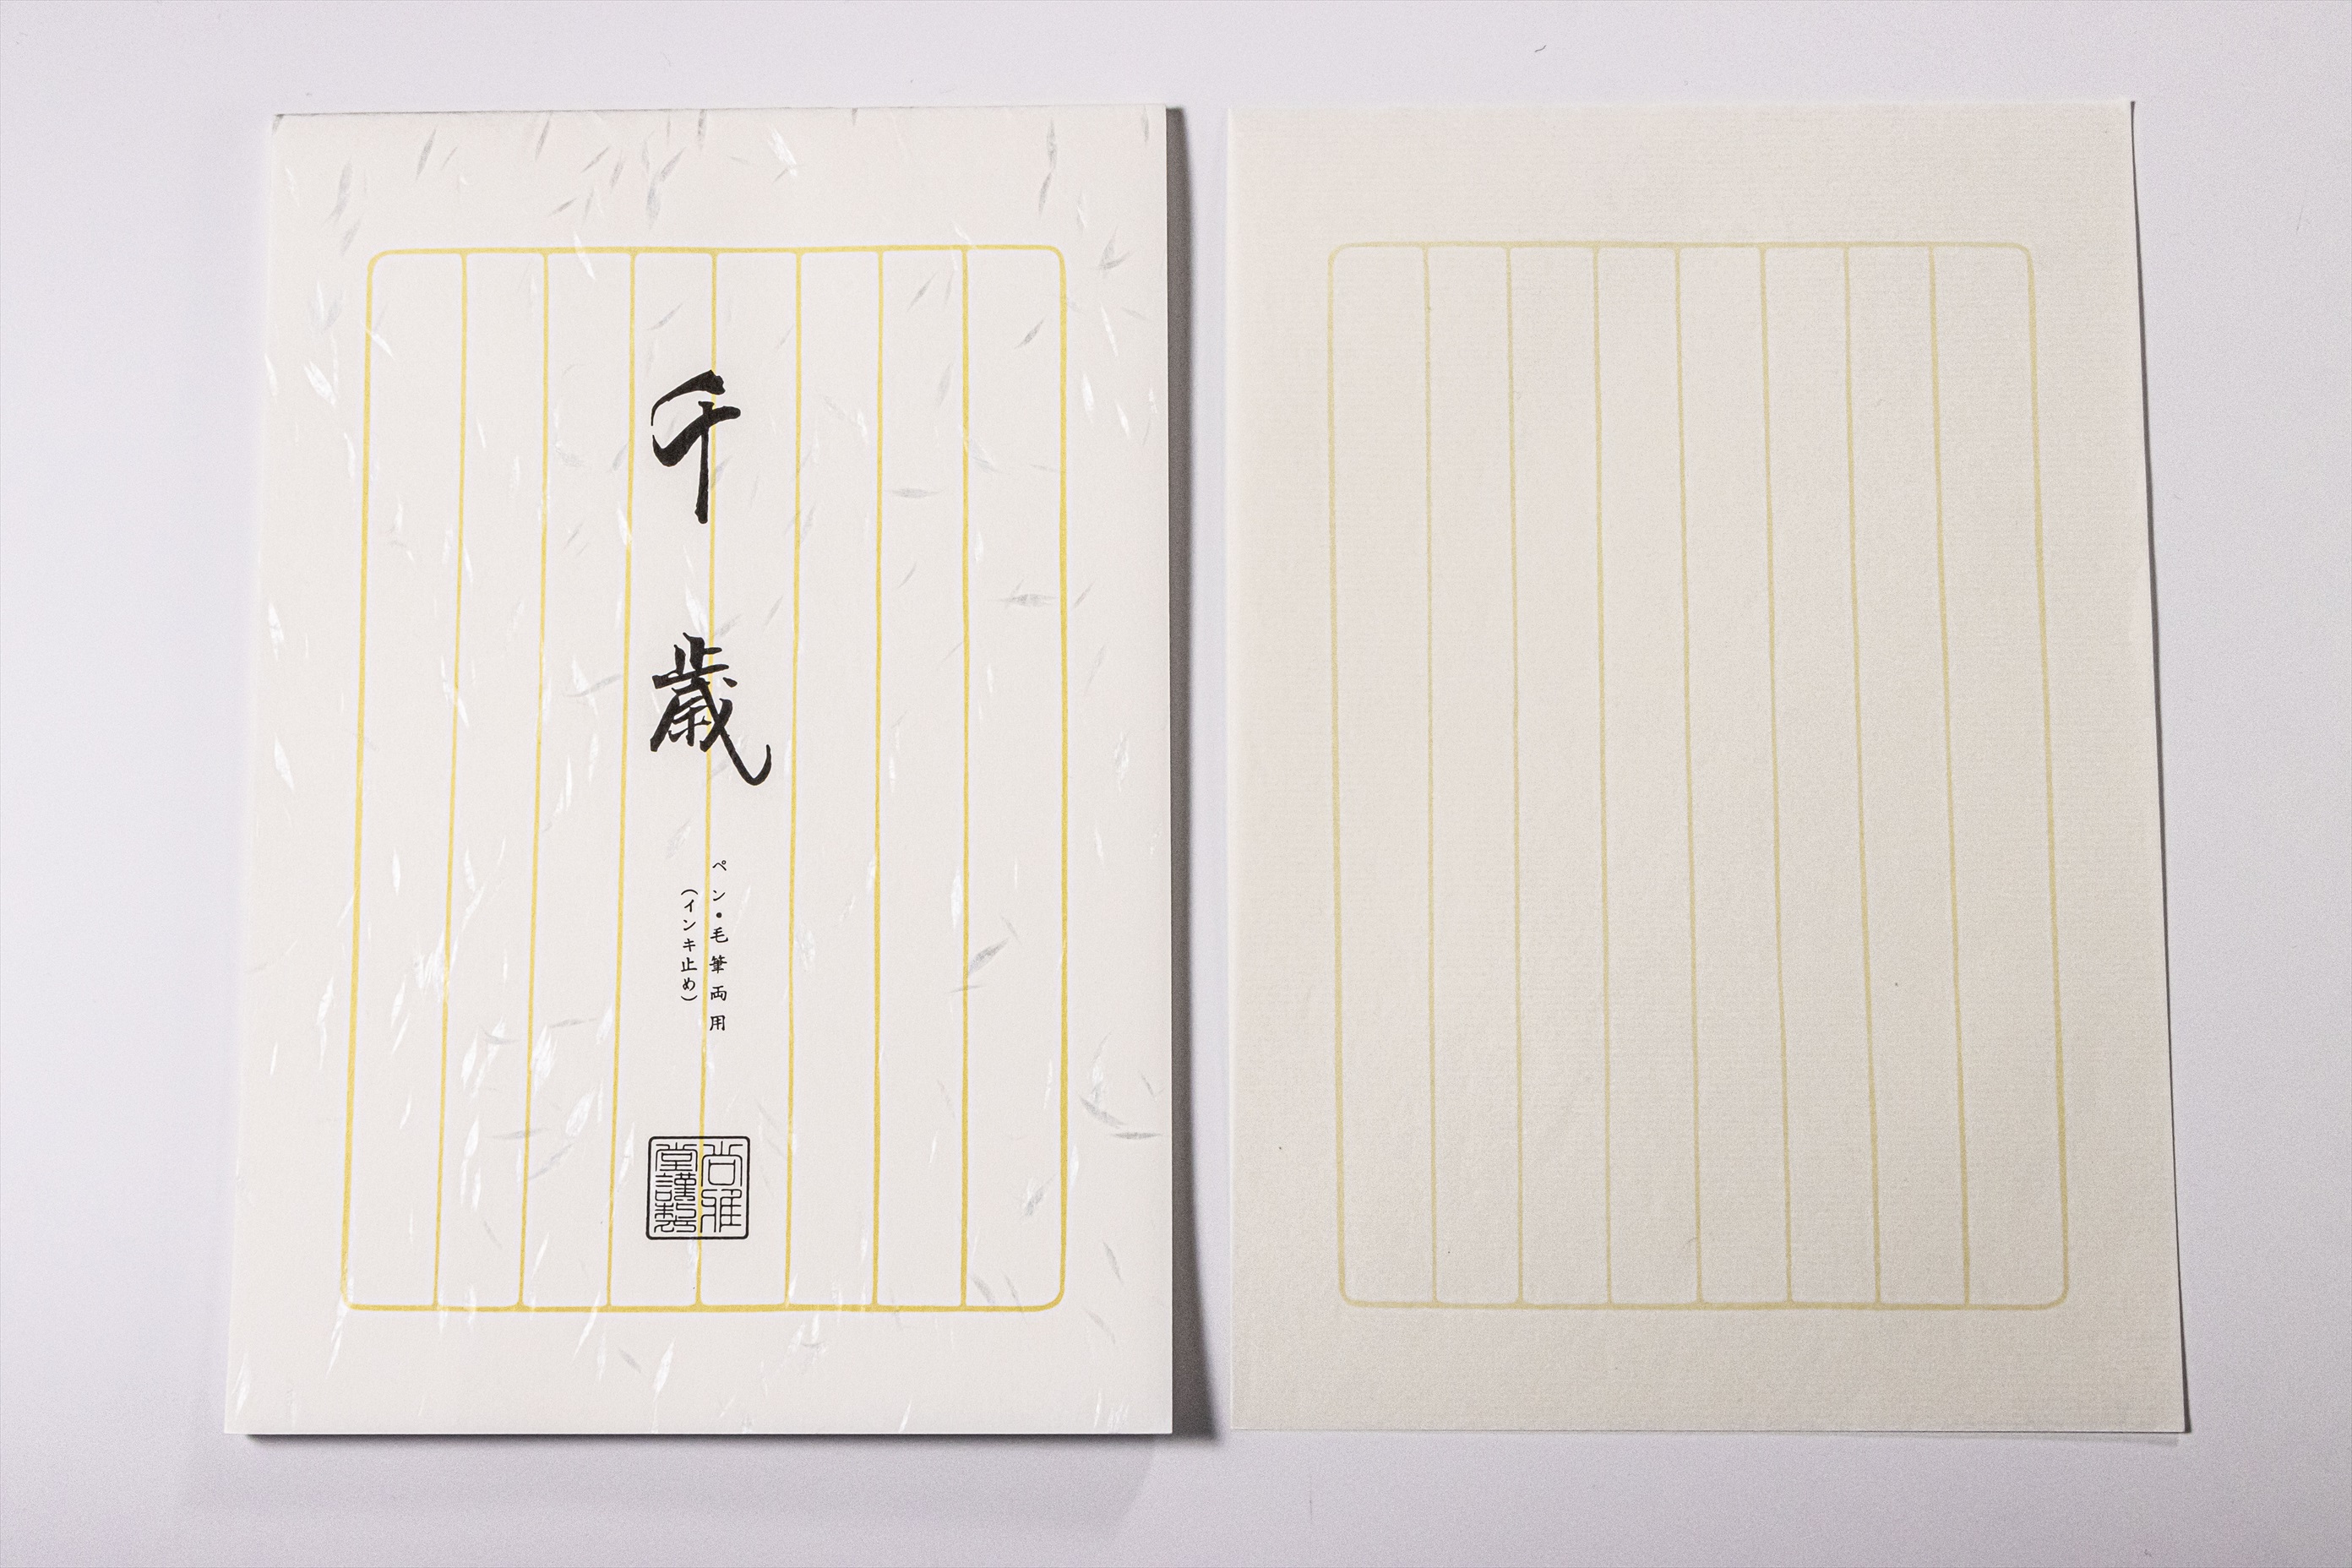 千歳
ペン・毛筆両用
（インキ止め）
尚雅
堂謹製